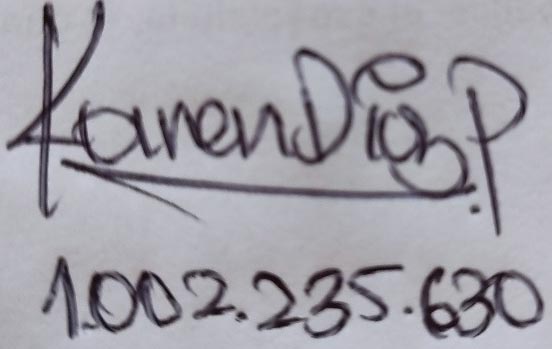 Karen Diaz P
1.002.235.630